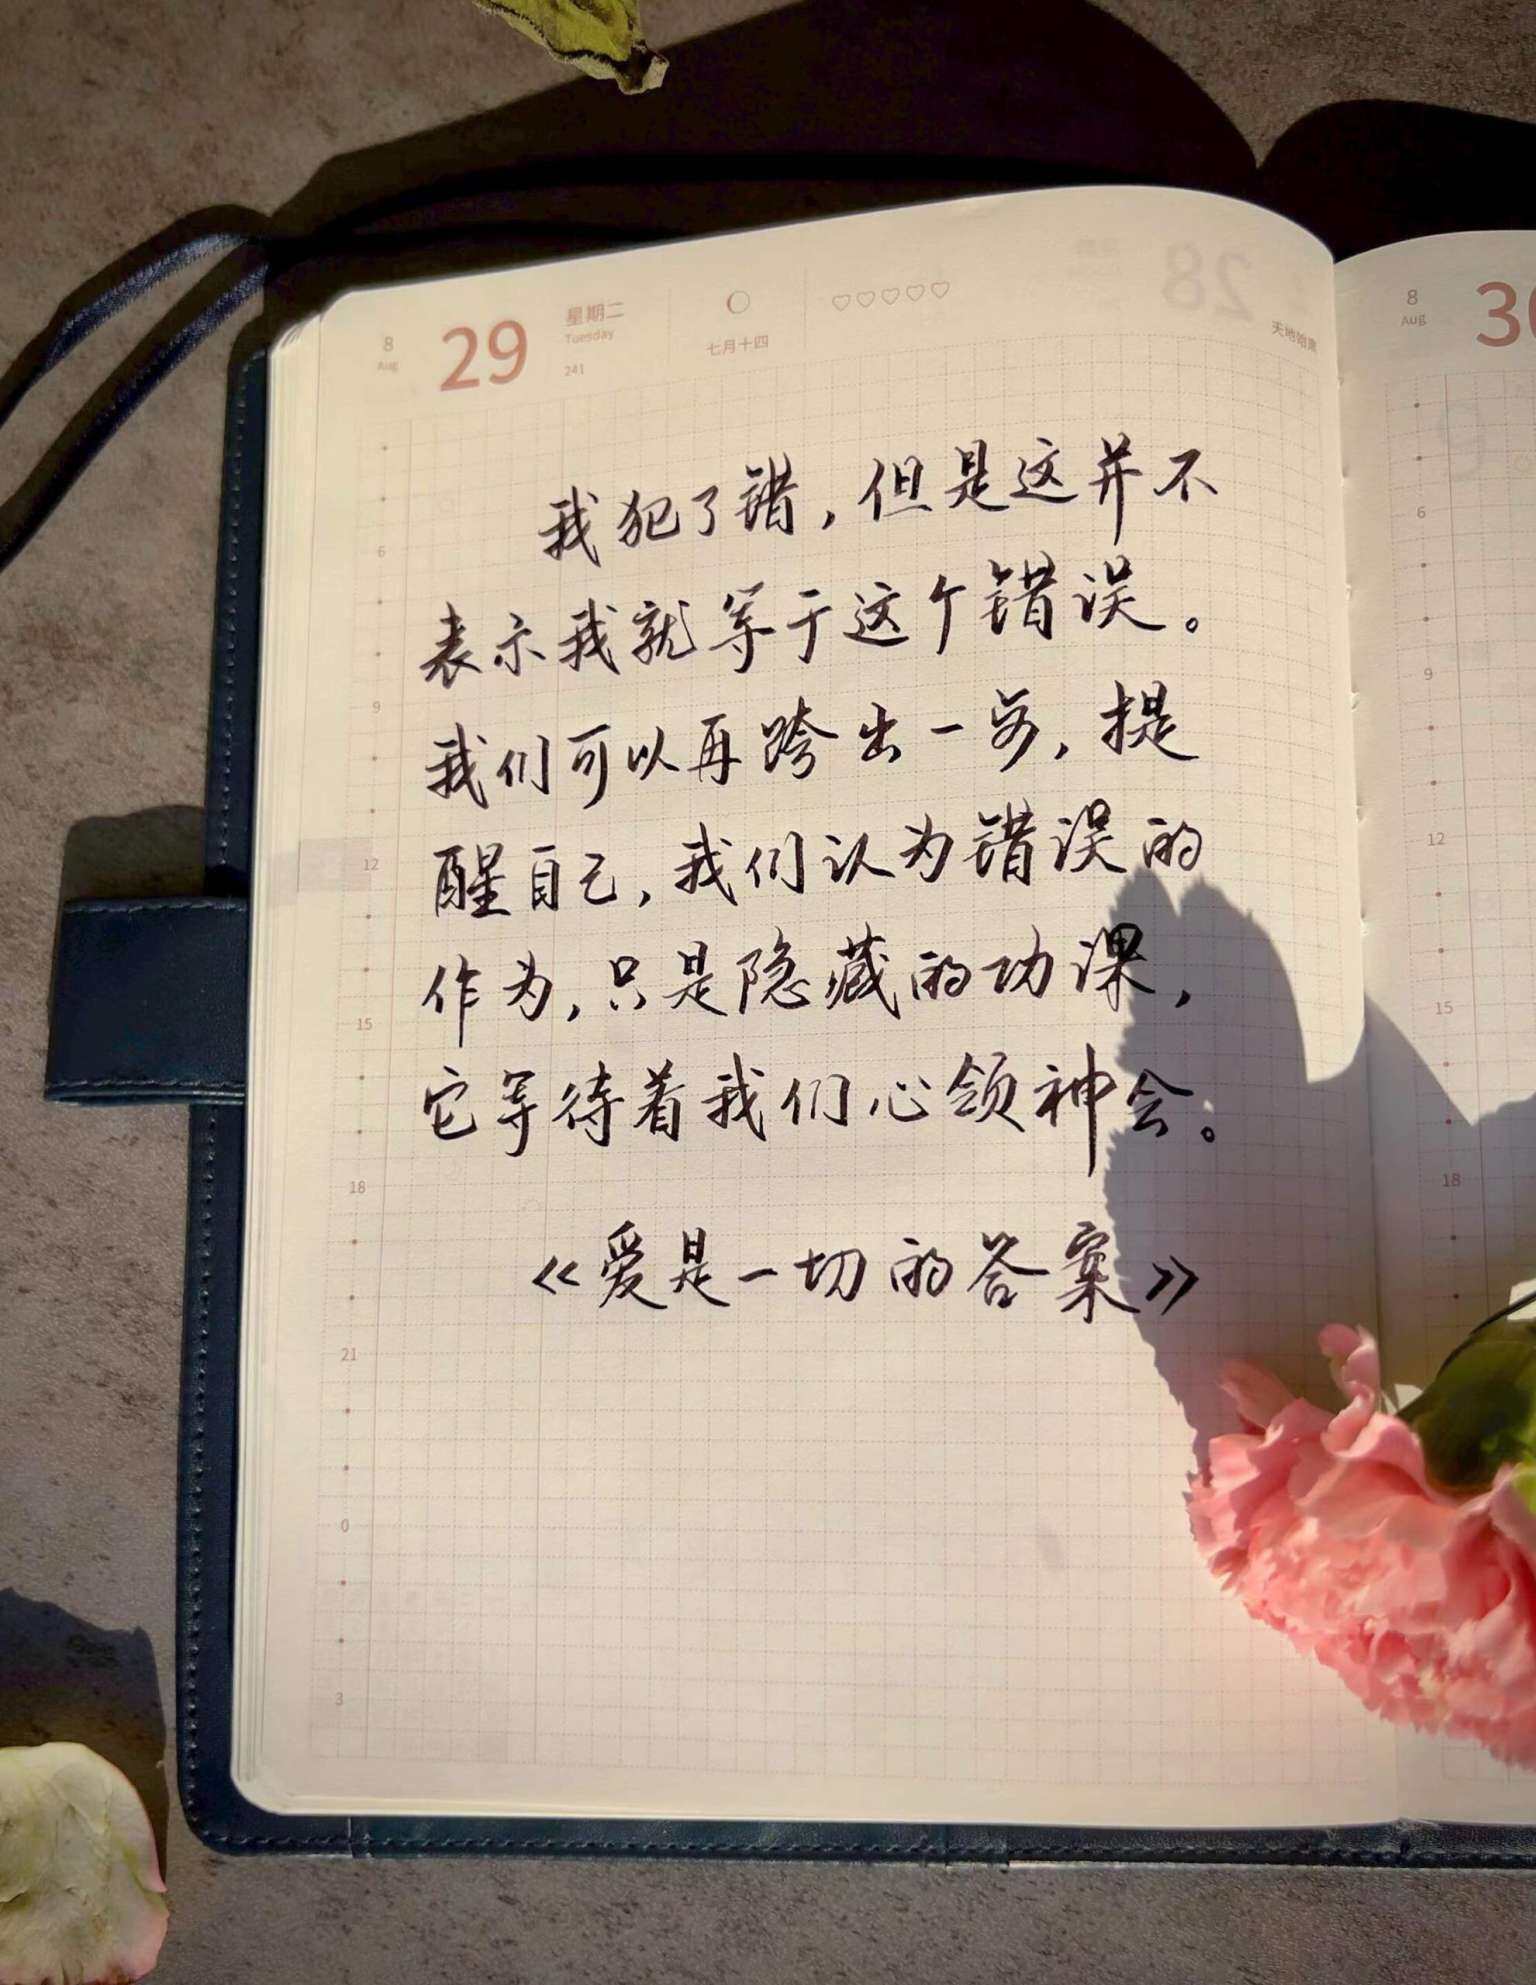 8
Aug
29
星期二
Tuesday
241
七月十四
28
天地始肃
8
Aug
我犯了错，但是这并不
表示我就等于这个错误。
我们可以再跨出一步，提
醒自己，我们认为错误的
作为，只是隐藏的功课，
它等待着我们心领神会。
《爱是一切的答案》
6
9
12
15
18
21
0
3
6
9
12
15
18